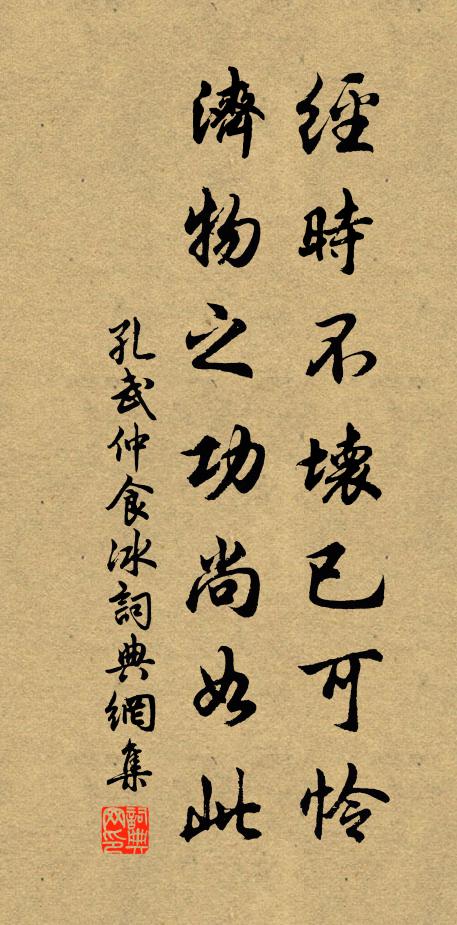 經時不壞已可憐
濟物之功尚如此
孔武仲食冰詞典網集
詞典網印